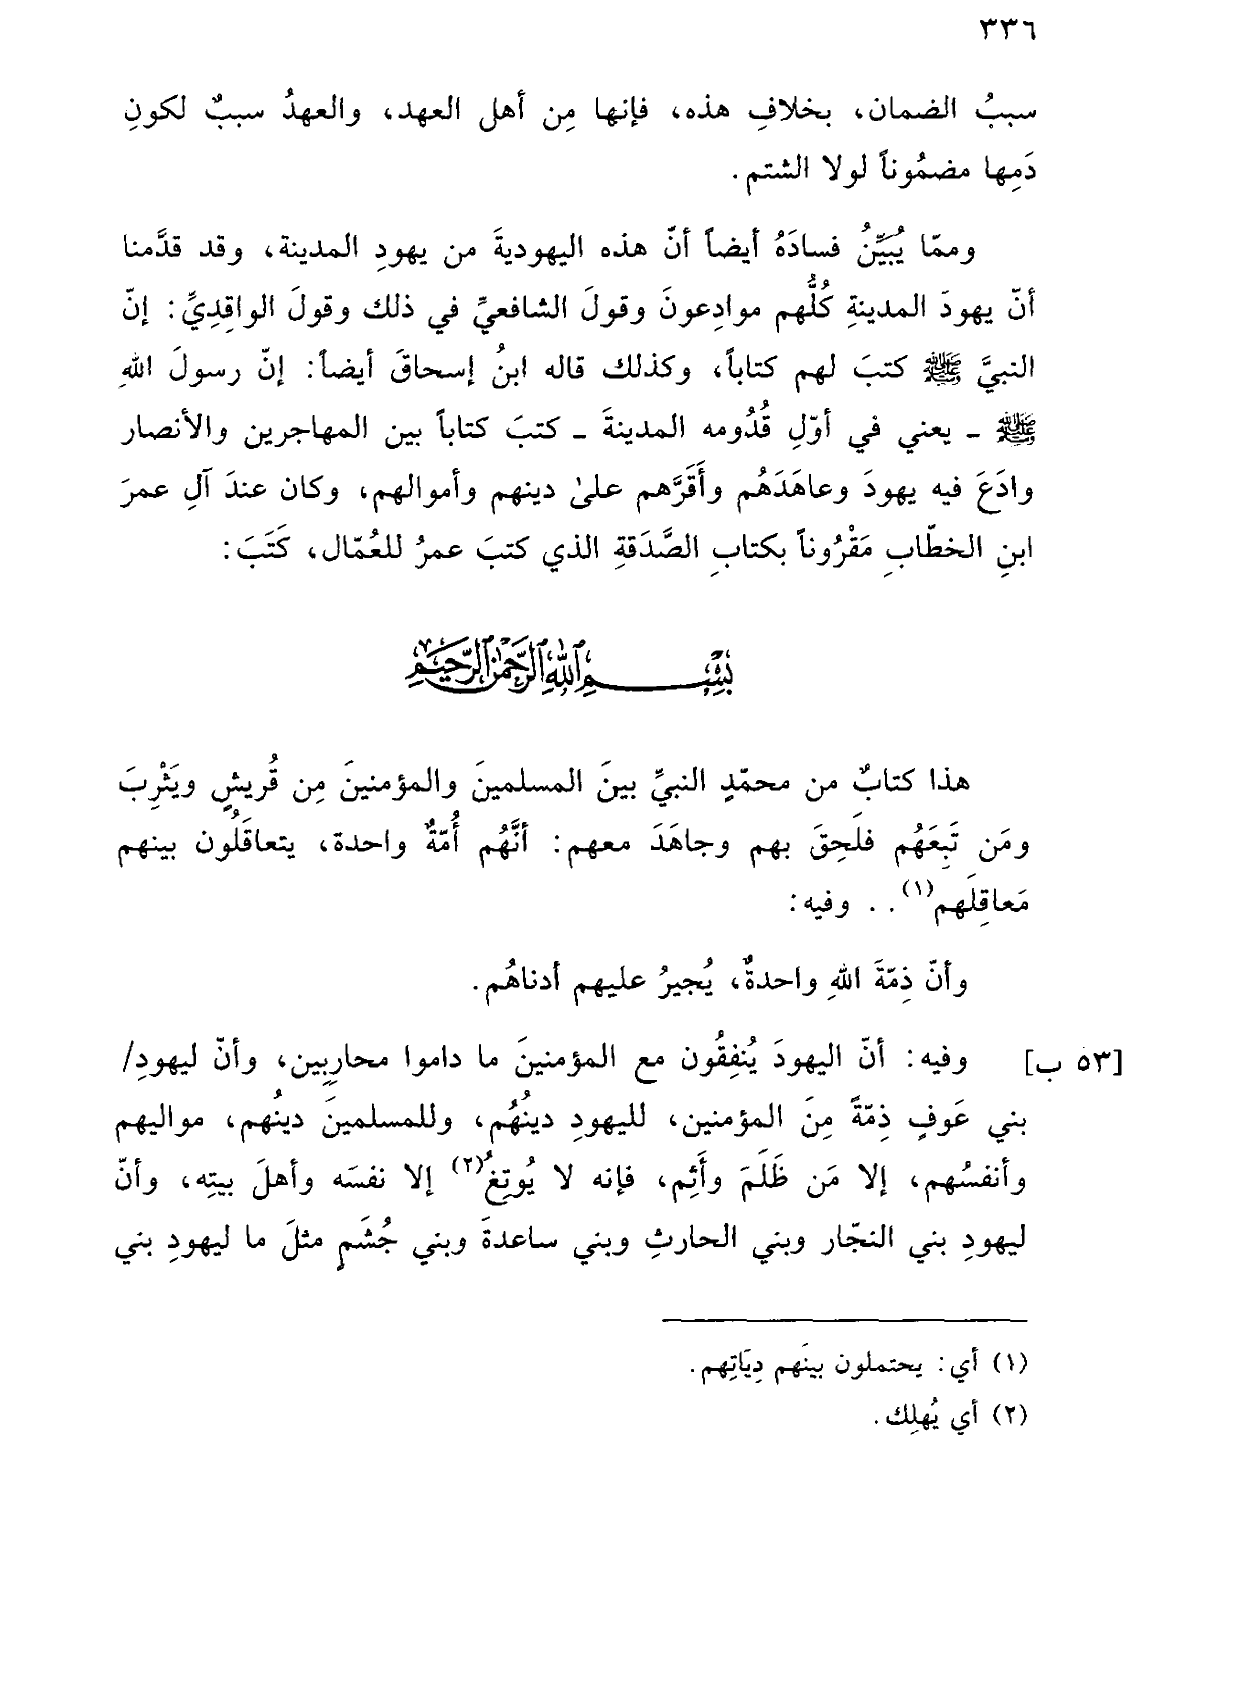 ٣٣٦
سببُ الضمان، بخلافِ هذه، فإنها مِن أهل العهد، والعهدُ سببٌ لكونِ
دَمِها مضمُوناً لولا الشتم.
وممّا يُبيِّنُ فسادَهُ أيضاً أنّ هذه اليهوديةَ من يهودِ المدينة، وقد قدَّمنا
أنّ يهودَ المدينةِ كُلُّهم موادِعونَ وقولَ الشافعيِّ في ذلك وقولَ الواقِدِيِّ: إنّ
النبيَّ ﷺ كتبَ لهم كتاباً، وكذلك قاله ابنُ إسحاقَ أيضاً: إنّ رسولَ اللهِ
ﷺ ـ يعني في أوّلِ قُدُومه المدينةَ ـ كتبَ كتاباً بين المهاجرين والأنصار
وادَعَ فيه يهودَ وعاهَدَهُم وأَقَرَّهم علىٰ دينهم وأموالهم، وكان عندَ آلِ عمرَ
ابنِ الخطّابِ مَقْرُوناً بكتابِ الصَّدَقةِ الذي كتبَ عمرُ للعُمّال، كَتَبَ:
بِسْمِ ٱللَّهِ ٱلرَّحْمَٰنِ ٱلرَّحِيمِ
هذا كتابٌ من محمّدٍ النبيِّ بينَ المسلمينَ والمؤمنينَ مِن قُريشٍ ويَثْرِبَ
ومَن تَبِعَهُم فلَحِقَ بهم وجاهَدَ معهم: أنَّهُم أُمّةٌ واحدة، يتعاقَلُون بينهم
مَعاقِلَهم(١). . وفيه:
وأنّ ذِمّةَ اللهِ واحدةٌ، يُجيرُ عليهم أدناهُم.
[٥٣ ب] وفيه: أنّ اليهودَ يُنفِقُون مع المؤمنينَ ما داموا محاربِين، وأنّ ليهودِ/
بني عَوفٍ ذِمّةً مِنَ المؤمنين، لليهودِ دينُهُم، وللمسلمينَ دينُهم، مواليهم
وأنفسُهم، إلا مَن ظَلَمَ وأَثِم، فإنه لا يُوتِغُ(٢) إلا نفسَه وأهلَ بيتِه، وأنّ
ليهودِ بني النجّار وبني الحارثِ وبني ساعدةَ وبني جُشَمٍ مثلَ ما ليهودِ بني
(١) أي: يحتملون بينَهم دِيَاتِهم.
(٢) أي يُهلِك.